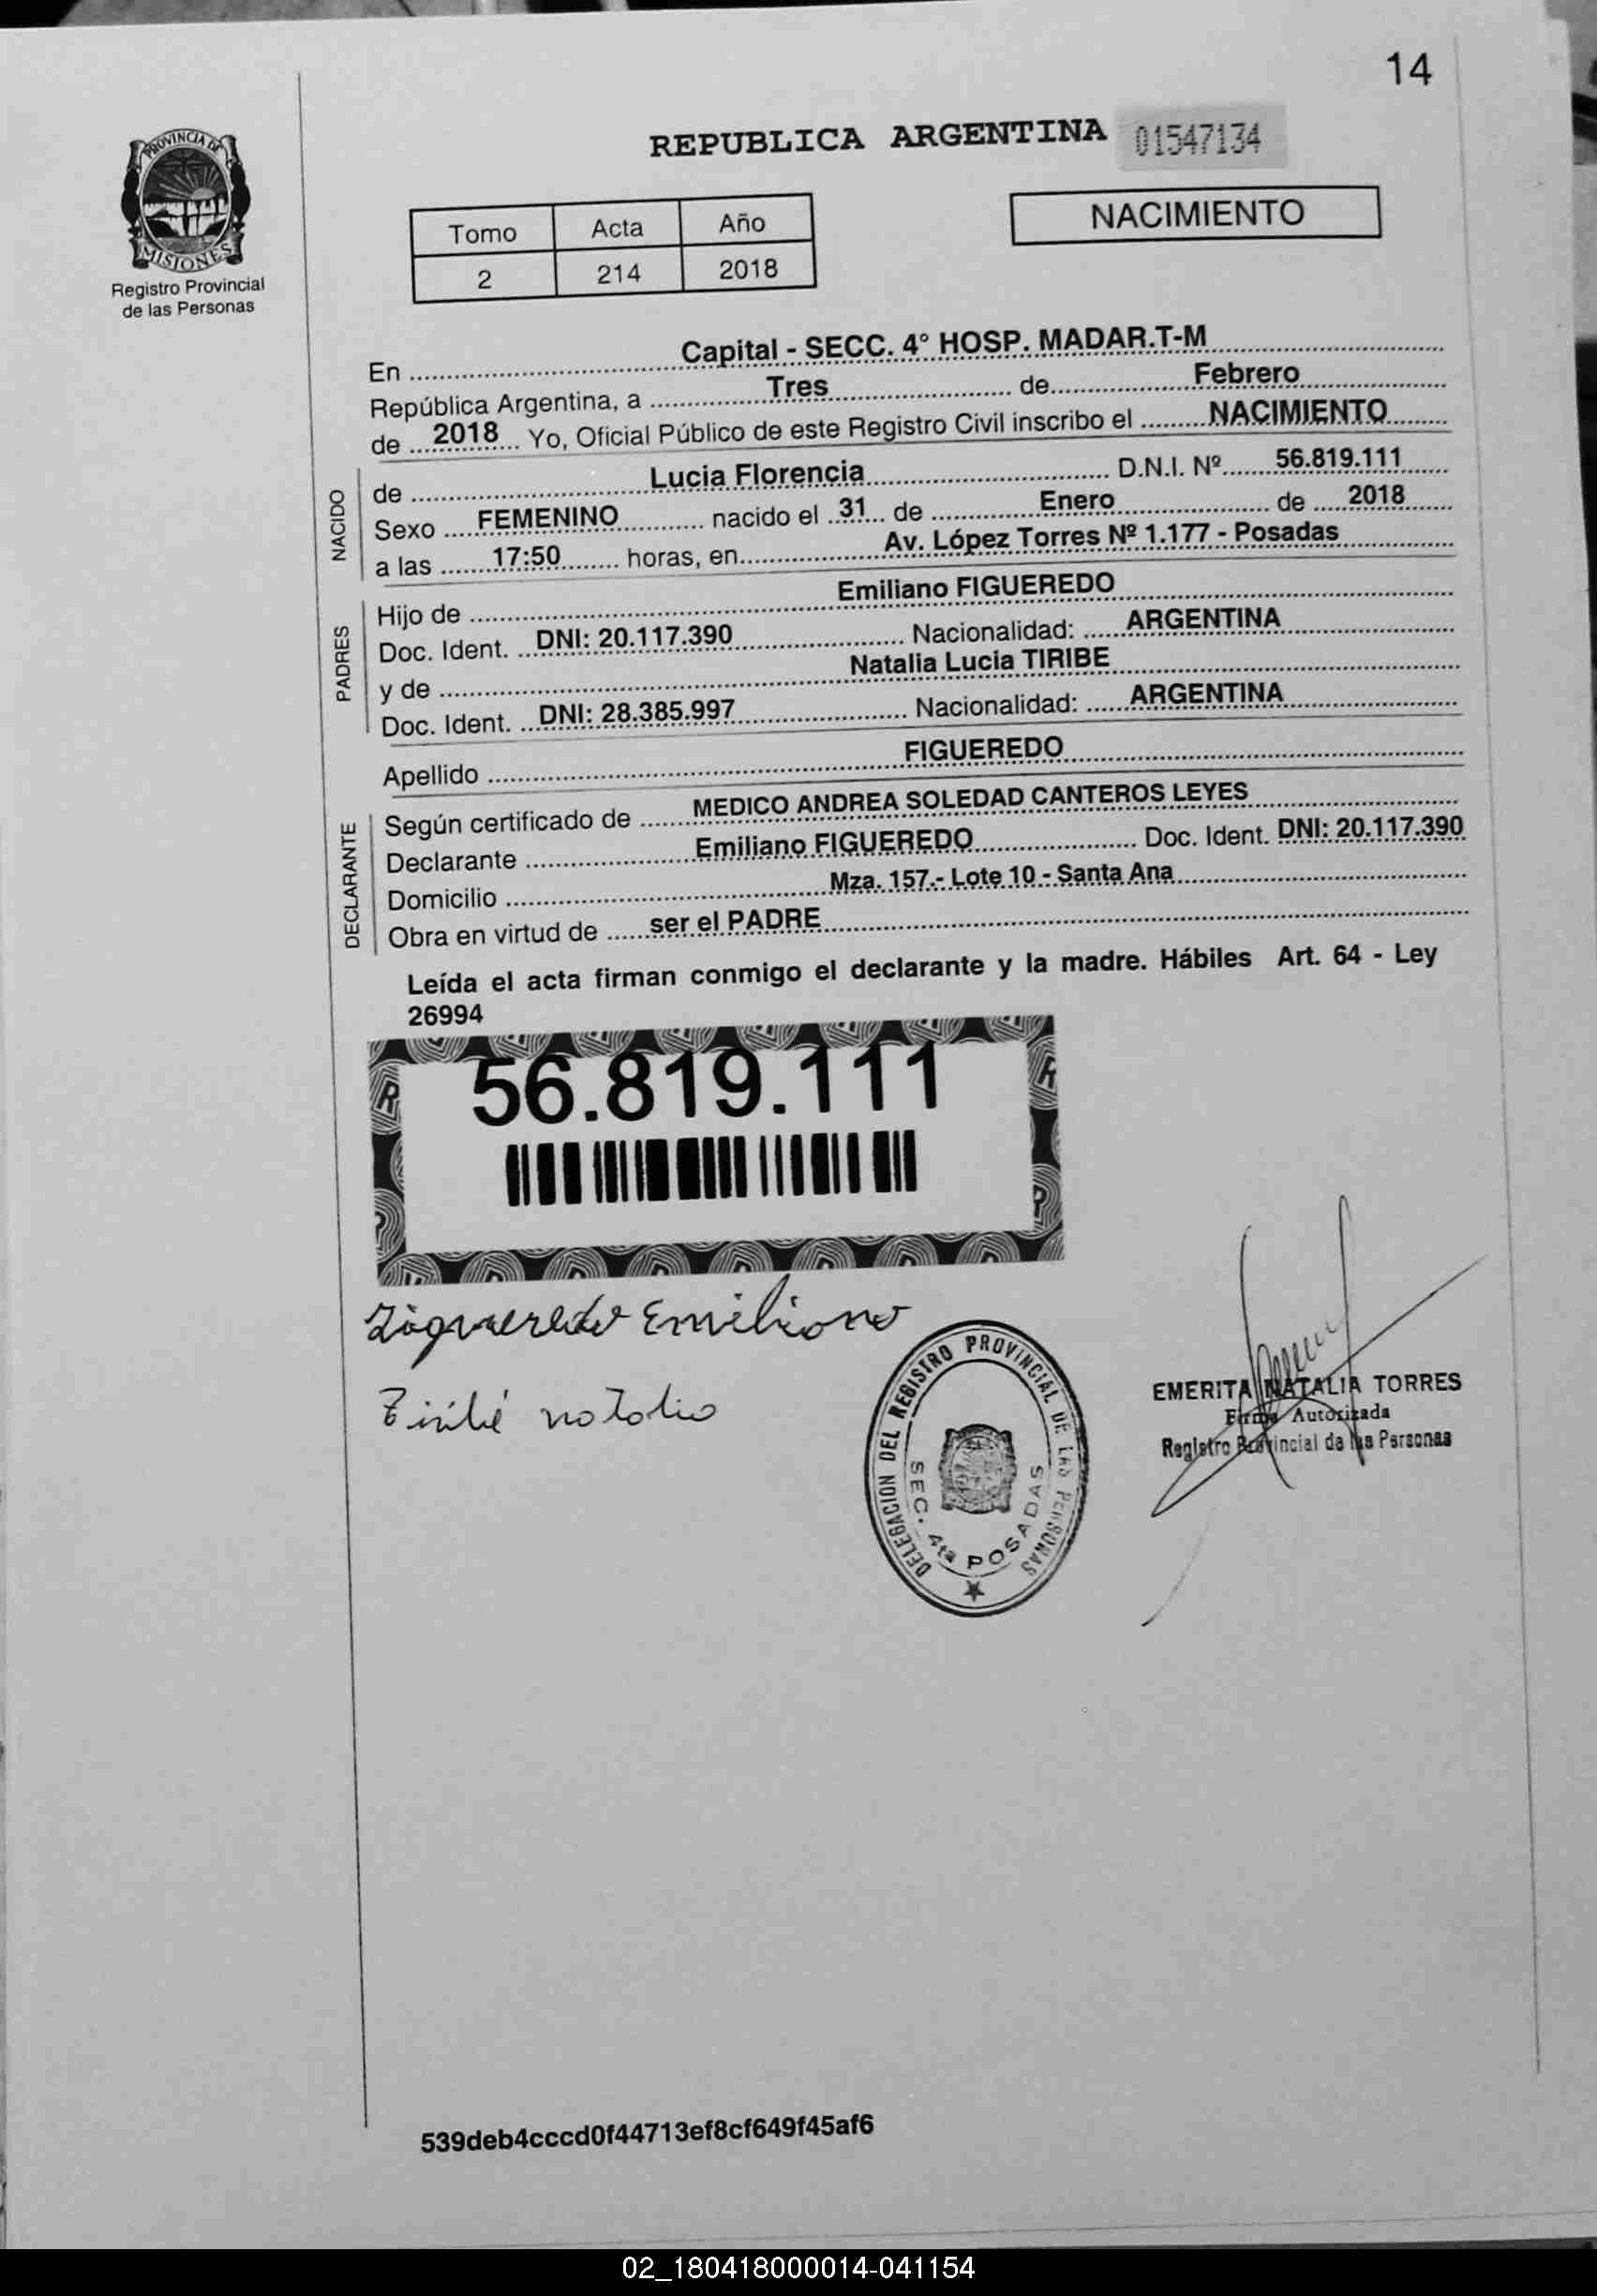 14
PROVINCIA DE
MISIONES
Registro Provincial
de las Personas
REPUBLICA ARGENTINA 01547134
Tomo Acta Año
2 214 2018
NACIMIENTO
En Capital - SECC. 4° HOSP. MADAR.T-M
República Argentina, a Tres de Febrero
de 2018 Yo, Oficial Público de este Registro Civil inscribo el NACIMIENTO
NACIDO
de Lucia Florencia D.N.I. Nº 56.819.111
Sexo FEMENINO nacido el 31 de Enero de 2018
a las 17:50 horas, en Av. López Torres Nº 1.177 - Posadas
PADRES
Hijo de Emiliano FIGUEREDO
Doc. Ident. DNI: 20.117.390 Nacionalidad: ARGENTINA
y de Natalia Lucia TIRIBE
Doc. Ident. DNI: 28.385.997 Nacionalidad: ARGENTINA
Apellido FIGUEREDO
DECLARANTE
Según certificado de MEDICO ANDREA SOLEDAD CANTEROS LEYES
Declarante Emiliano FIGUEREDO Doc. Ident. DNI: 20.117.390
Domicilio Mza. 157.- Lote 10 - Santa Ana
Obra en virtud de ser el PADRE
Leída el acta firman conmigo el declarante y la madre. Hábiles Art. 64 - Ley
26994
56.819.111
Figueredo Emiliano
Tiribé natalia
DELEGACION DEL REGISTRO PROVINCIAL DE LAS PERSONAS
SEC. 4ta POSADAS
EMERITA NATALIA TORRES
Firma Autorizada
Registro Provincial de las Personas
539deb4cccd0f44713ef8cf649f45af6
02_180418000014-041154